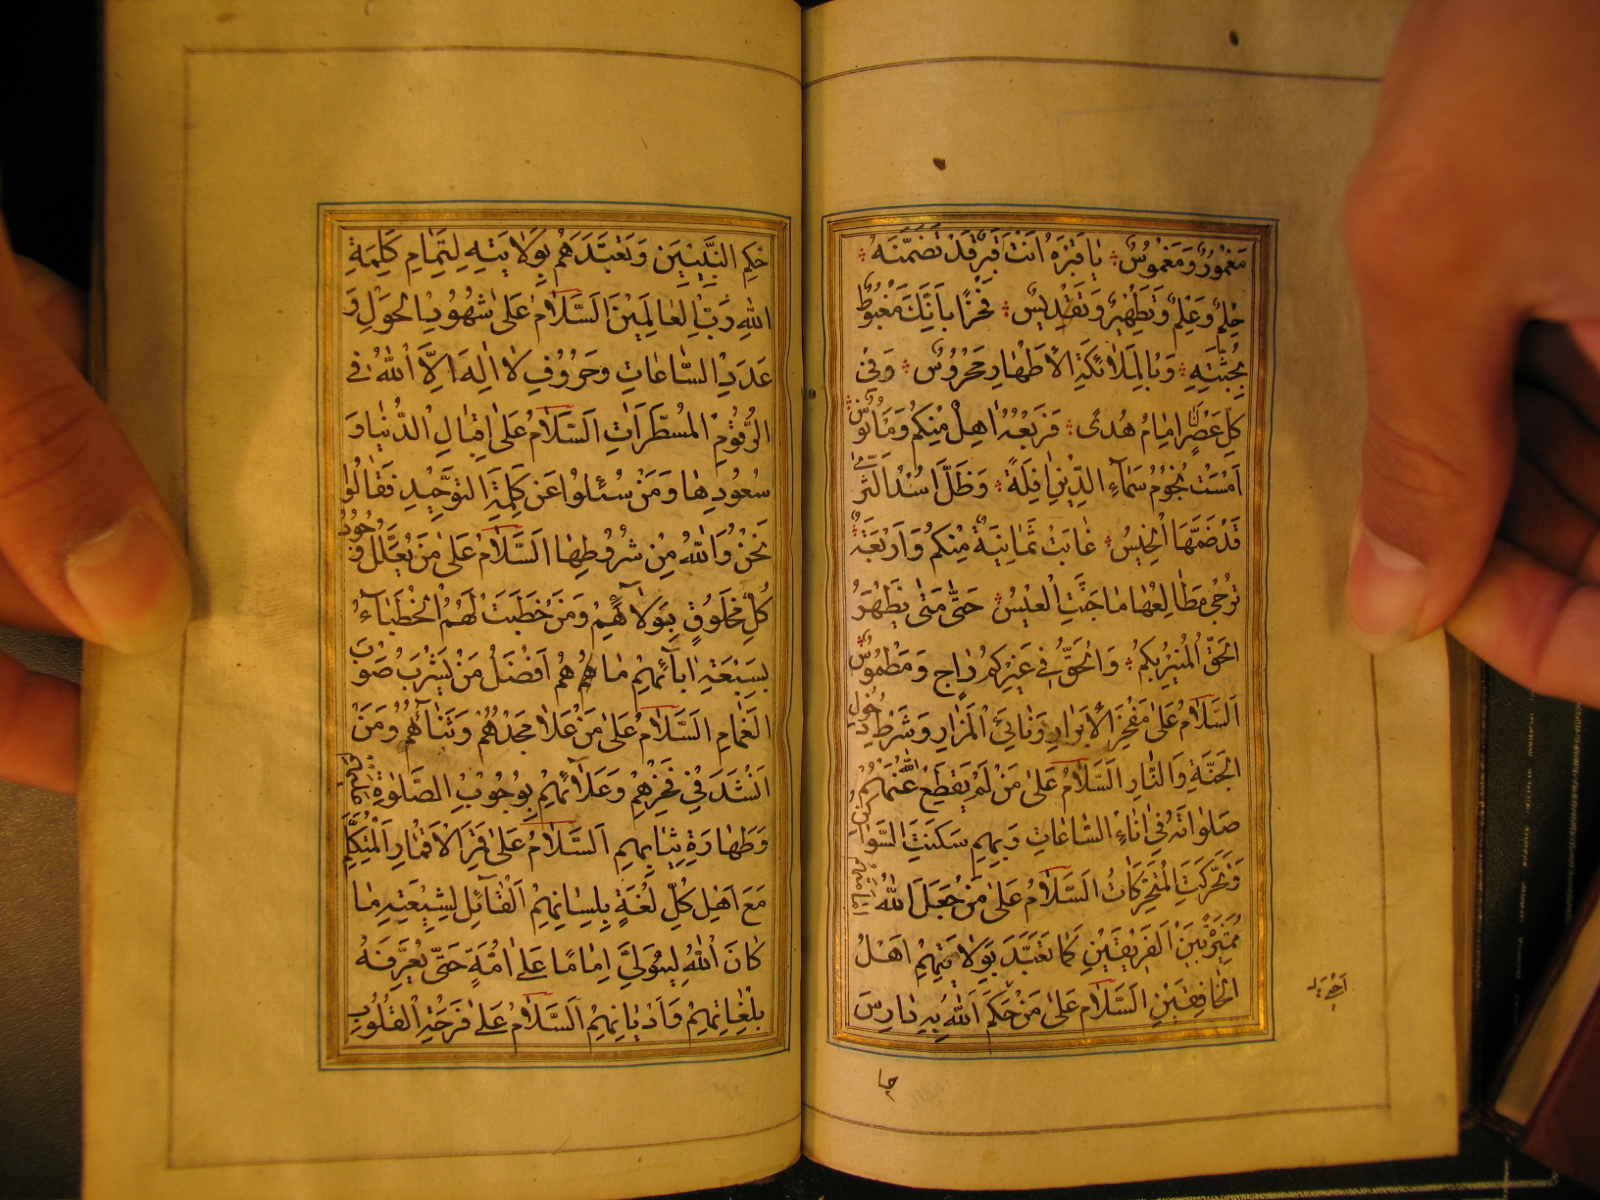 مَغْمُورٌ وَمَغْمُوسٌ يَا قَبْرَهُ اَنْتَ قَبْرٌ قَدْ تَضَمَّنَهُ
حِلْمٌ وَعِلْمٌ وَتَطْهِيرٌ وَتَقْدِيسٌ فَخْرًا بِاَنَّكَ مَغْبُوطٌ
بِجُثَّتِهِ وَبِالْمَلَائِكَةِ الْاَطْهَارِ مَحْرُوسٌ وَفِي
كُلِّ عَصْرٍ اِمَامُ هُدًى فَرَبْعُهُ اٰهِلٌ مِنْكُمْ وَمَأْنُوسٌ
اَمْسَتْ نُجُومُ سَمَاءِ الدِّينِ اٰفِلَةً وَظَلَّ اُسْدُ الشَّرَىٰ
قَدْ ضَمَّهَا الْخِيسُ غَابَتْ ثَمَانِيَةٌ مِنْكُمْ وَاَرْبَعَةٌ
تُرْجٰى مَطَالِعُهَا مَا حَنَّتِ الْعِيسُ حَتّٰى مَتٰى يَظْهَرُ
الْحَقُّ الْمُنِيرُ بِكُمْ وَالْحَقُّ فِي غَيْرِكُمْ دَاجٍ وَمَطْمُوسٌ
اَلسَّلَامُ عَلٰى مَفْخَرِ الْاَبْرَارِ وَنَائِي الْمَزَارِ وَشَرْطِ دُخُولِ
الْجَنَّةِ وَالنَّارِ اَلسَّلَامُ عَلٰى مَنْ لَمْ يَقْطَعِ اللهُ عَنْهُمْ
صَلَوَاتَهُ فِي اٰنَاءِ السَّاعَاتِ وَبِهِمْ سَكَنَتِ السَّوَاكِنُ
وَتَحَرَّكَتِ الْمُتَحَرِّكَاتُ اَلسَّلَامُ عَلٰى مَنْ جَعَلَ اللهُ
مُمَيِّزَةً بَيْنَ الْفَرِيقَيْنِ كَمَا تَعَبَّدَ بِوَلَايَتِهِمْ اَهْلَ
الْخَافِقَيْنِ اَلسَّلَامُ عَلٰى مَنْ
حِكَمِ النَّبِيِّينَ وَتَعَبَّدَهُمْ بِوَلَايَتِهِ لِتَمَامِ كَلِمَةِ
اللهِ رَبِّ الْعَالَمِينَ اَلسَّلَامُ عَلٰى شُهُورِ الْحَوْلِ وَ
عَدَدِ السَّاعَاتِ وَحُرُوفِ لَا اِلٰهَ اِلَّا اللهُ فِي
الرُّقُومِ الْمُسَطَّرَاتِ اَلسَّلَامُ عَلٰى اِقْبَالِ الدُّنْيَا وَ
سُعُودِهَا وَمَنْ سُئِلُوا عَنْ كَلِمَةِ التَّوْحِيدِ فَقَالُوا
نَحْنُ وَاللهِ مِنْ شُرُوطِهَا اَلسَّلَامُ عَلٰى مَنْ يُعَلَّلُ وُجُودُ
كُلِّ مَخْلُوقٍ بِوَلَاهُمْ وَمَنْ خَطَبَتْ لَهُمُ الْخُطَبَاءُ
بِسَبْعَةٍ اٰبَائُهُمْ مَا هُمْ هُمْ اَفْضَلُ مَنْ يَشْرَبُ صَوْبَ
الْغَمَامِ اَلسَّلَامُ عَلٰى مَنْ عَلَا مَجْدُهُمْ وَثَنَاؤُهُمْ وَمَنْ
اَنْشَدَ فِي فَخْرِهِمْ وَعَلَائِهِمْ بِوُجُوبِ الصَّلٰوةِ عَلَيْهِمْ
وَطَهَارَةِ ثِيَابِهِمْ اَلسَّلَامُ عَلٰى قَمَرِ الْاَقْمَارِ الْمُتَكَلِّمِ
مَعَ اَهْلِ كُلِّ لُغَةٍ بِلِسَانِهِمُ الْقَائِلِ لِشِيعَتِهِ مَا
كَانَ اللهُ لِيُوَلِّيَ اِمَامًا عَلٰى اُمَّةٍ حَتّٰى يُعَرِّفَهُ
بِلُغَاتِهِمْ وَاَدْيَانِهِمْ اَلسَّلَامُ عَلٰى فَرْحَةِ الْقُلُوبِ